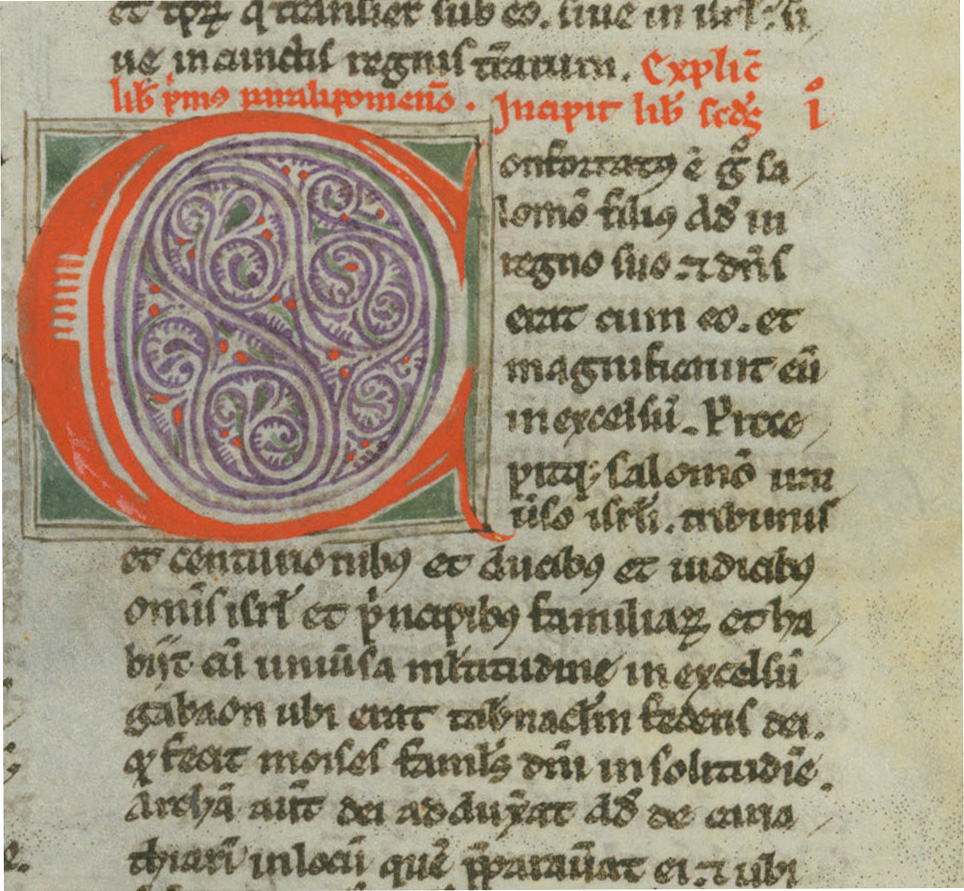 et tpꝝ q̄ transier̄ sub eo. siue in isrl̄: si
ue in cunctis regnis t̄rarum. Explic̄
lib̄ p̍mus paralipomenō. Incipit lib̄ scds̄ i
C onfortatꝰ ē g̊ sa
lomō filiꝰ dd̄ in
regno suo. ⁊ dn̄s
erat cum eo. et
magnificauit eū
in excelsū. Prece
pitqꝫ salomō uni
ūso isrl̄i. tribunis
et centurionibꝰ et ducibꝰ et iudicibꝰ
omīs isrl̄ et p̍ncipibꝰ familiaꝝ et ha
biit cū uniūsa ml̄titudine in excelsū
gabaon ubi erat tab̄nacl̄m federis dei.
qď fecit moises faml̄s dn̄i in solitudīe.
Archā aūt dei adduxat dd̄ de caria
thiarī in locū quē p̄parauāt ei. ⁊ ubi